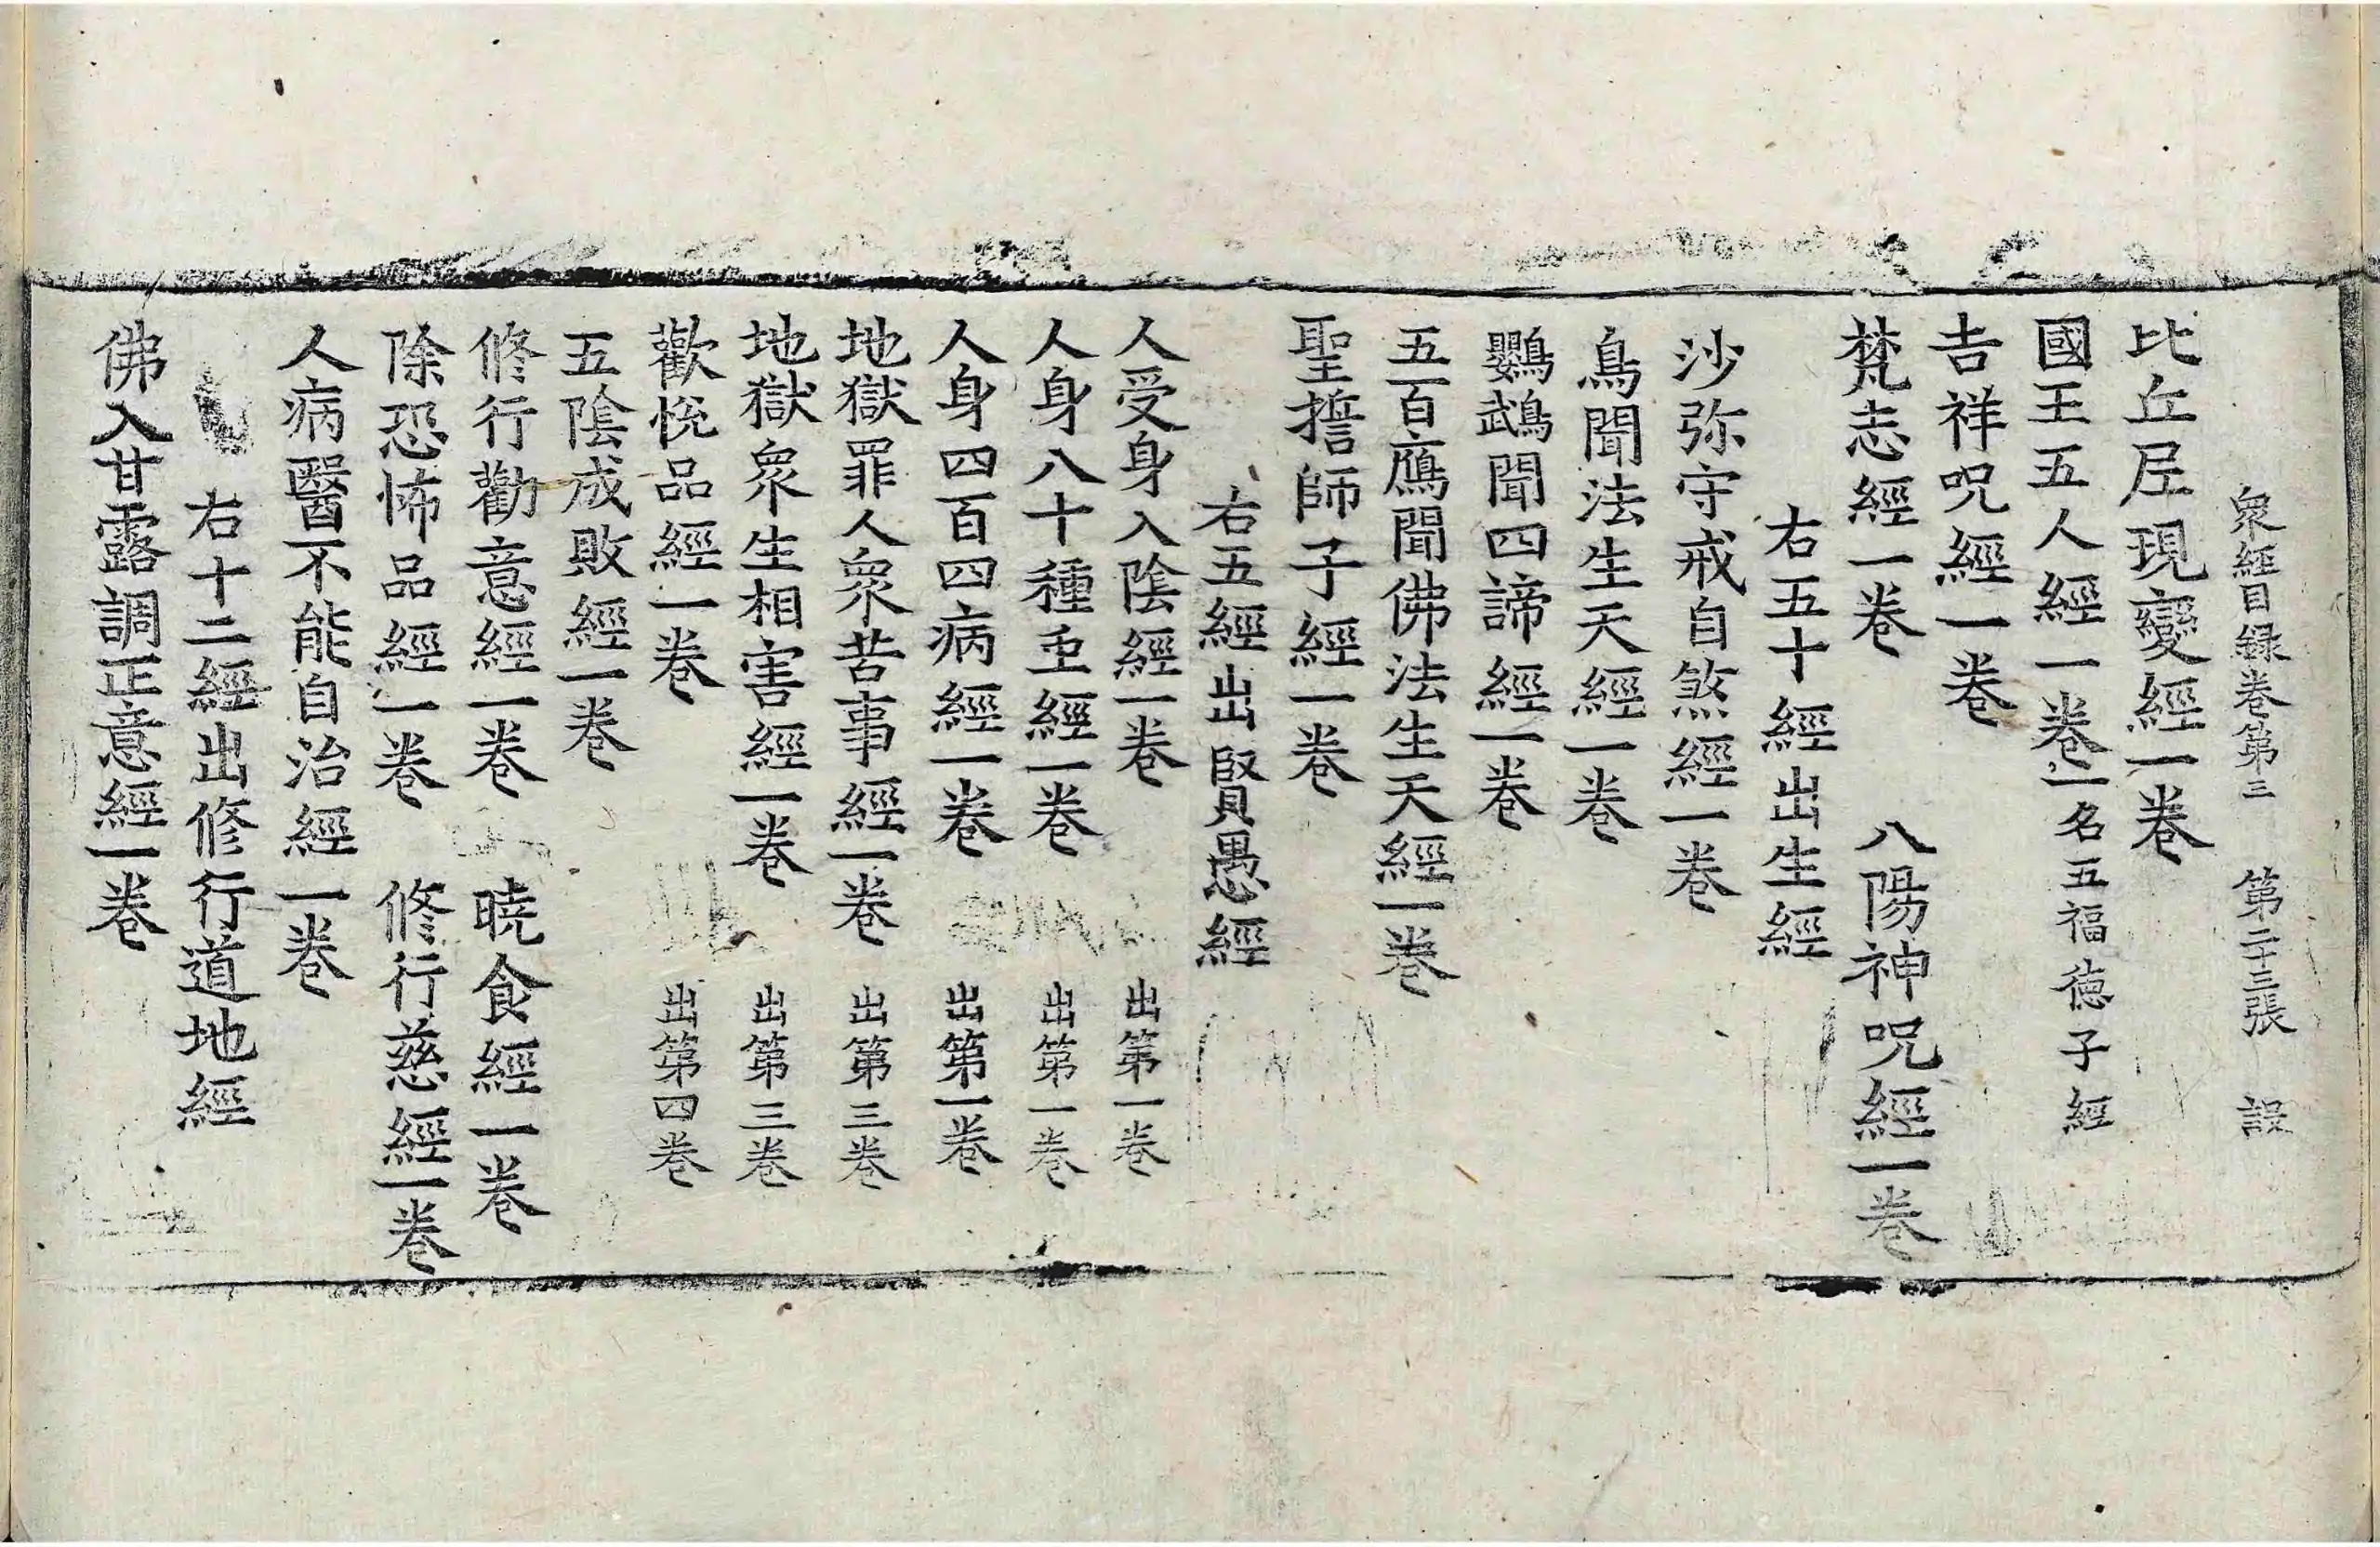 衆經目録卷第三　第二十三張　設
比丘尼現變經一卷
國王五人經一卷一名五福德子經
吉祥呪經一卷
梵志經一卷　八陽神呪經一卷
右五十經出生經
沙弥守戒自煞經一卷
鳥聞法生天經一卷
鸚鵡聞四諦經一卷
五百鴈聞佛法生天經一卷
聖㨗師子經一卷
右五經出賢愚經
人受身入陰經一卷　出第一卷
人身八十種虫經一卷　出第一卷
人身四百四病經一卷　出第一卷
地獄罪人衆苦事經一卷　出第三卷
地獄衆生相害經一卷　出第三卷
歡悅品經一卷　出第四卷
五陰成敗經一卷
修行勸意經一卷　曉食經一卷
除恐怖品經一卷　修行慈經一卷
人病醫不能自治經一卷
右十二經出修行道地經
佛入甘露調正意經一卷